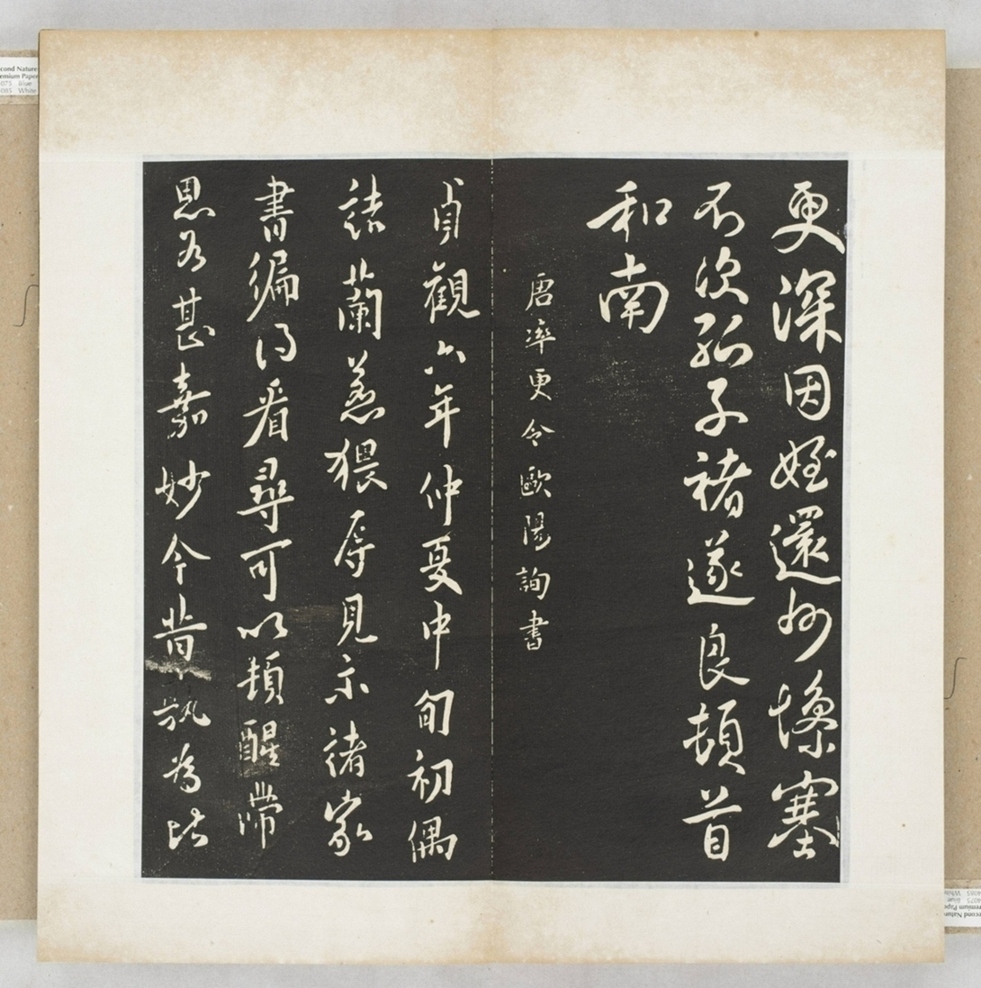 更深因姪還州慘塞
不次孤子褚遂良頓首
和南
唐率更令歐陽詢書
貞觀六年仲夏中旬初偶
詰蘭若猥辱見示諸家
書徧得看尋可以頓醒滯
思為甚嘉妙今昔孰為比
cond Nature
emium Paper
075 Blue
085 White